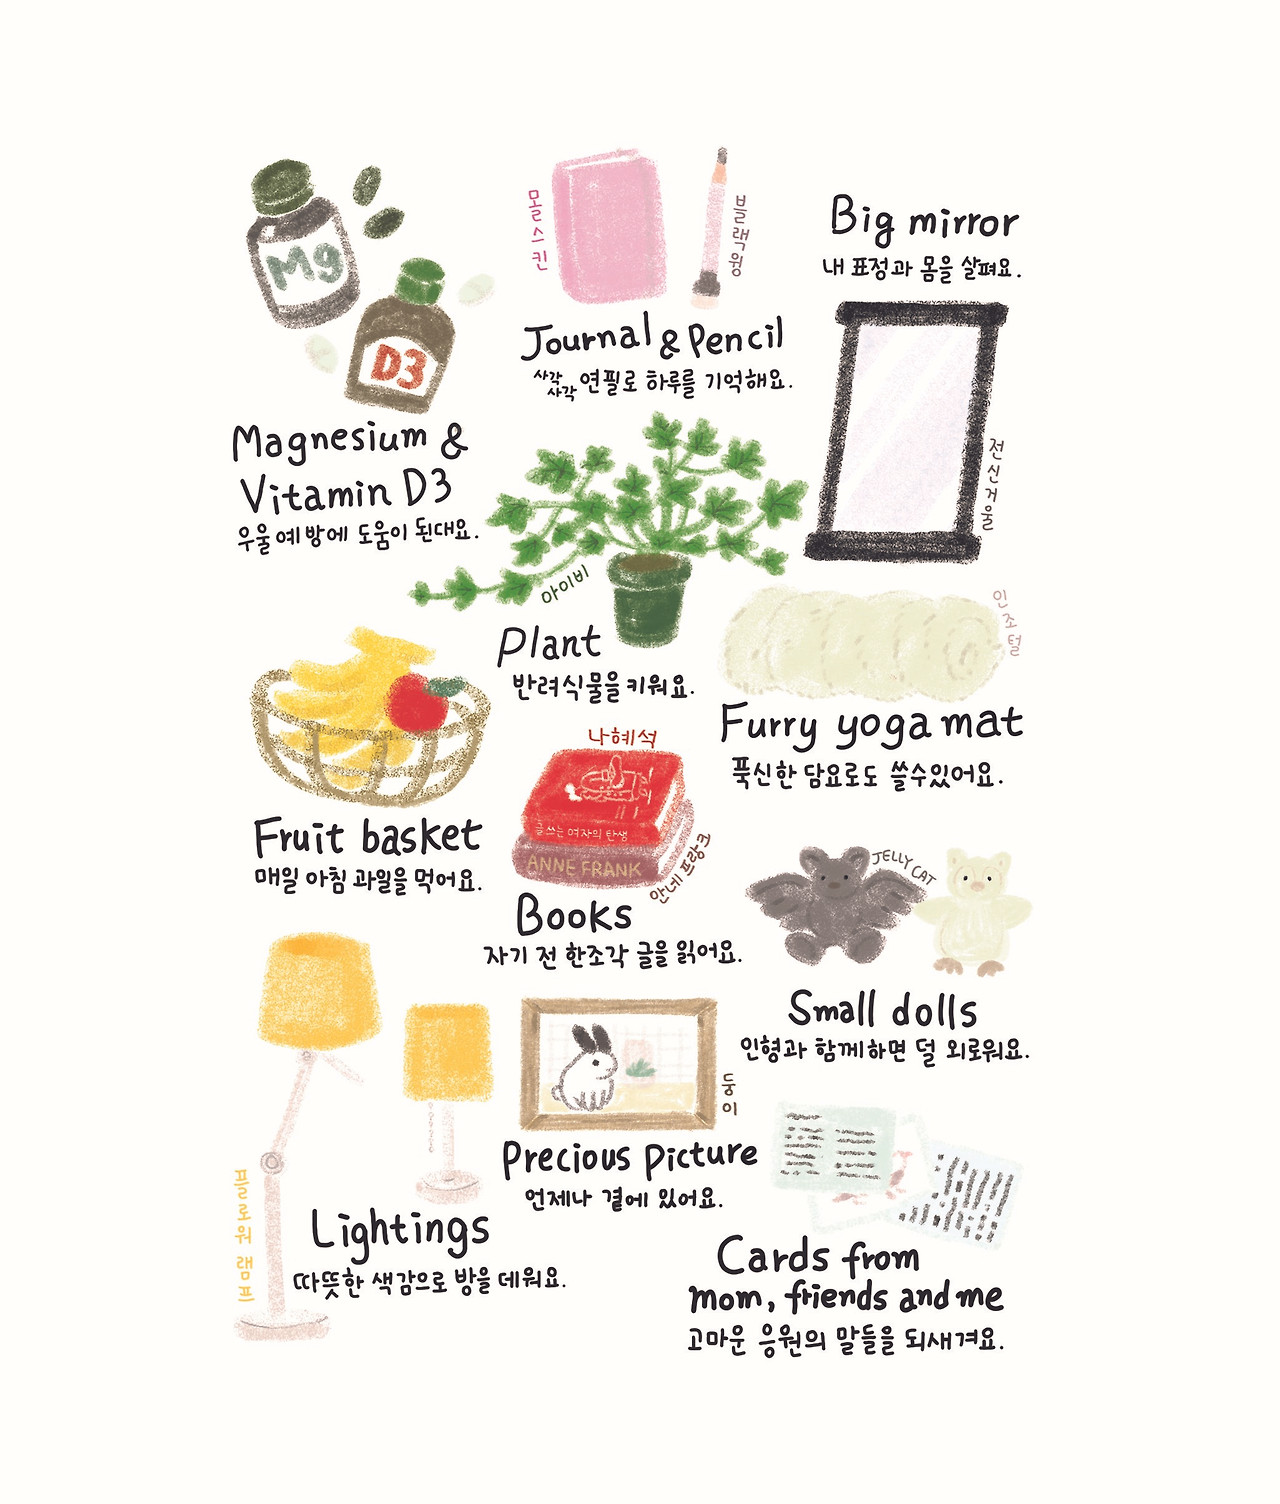 Mg
D3
Magnesium &
Vitamin D3
우울예방에 도움이 된대요.
몰스킨
블랙윙
Journal & Pencil
사각
사각 연필로 하루를 기억해요.
Big mirror
내 표정과 몸을 살펴요.
전신거울
아이비
Plant
반려식물을 키워요.
인조털
Furry yoga mat
푹신한 담요로도 쓸수있어요.
Fruit basket
매일 아침 과일을 먹어요.
나혜석
글쓰는 여자의 탄생
ANNE FRANK
안네 프랑크
Books
자기 전 한조각 글을 읽어요.
JELLY CAT
Small dolls
인형과 함께하면 덜 외로워요.
플로워 램프
Lightings
따뜻한 색감으로 방을 데워요.
둥이
Precious picture
언제나 곁에 있어요.
Cards from
mom, friends and me
고마운 응원의 말들을 되새겨요.